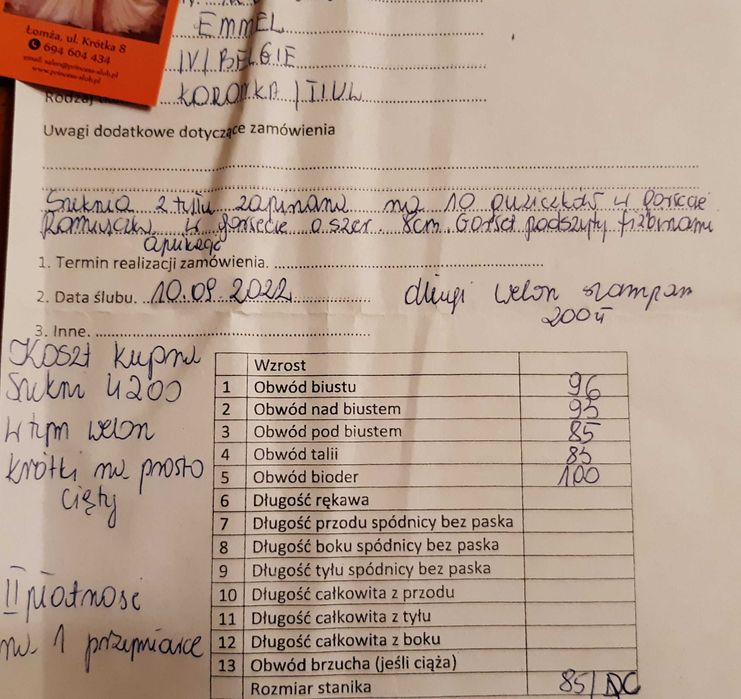 Łomża, ul. Krótka 8
694 604 434
email: salon@princess-slub.pl
www.princess-slub.pl
EMMEL
IV/BELGIE
Rodzaj
KORONKA/TIUL
Uwagi dodatkowe dotyczące zamówienia
Suknia z tyłu zapinana na 10 guziczków w gorsecie
Ramiączka w gorsecie o szer. 8cm Gorset podszyty fiszbinami
1. Termin realizacji zamówienia.
2. Data ślubu. 10.09.2022
długi welon szampan
200zł
3. Inne.
Koszt kupna
Sukni 4200
w tym welon
krótki na prosto
cięty
II płatność
na 1 przymiarce
Wzrost
1 Obwód biustu 96
2 Obwód nad biustem 95
3 Obwód pod biustem 85
4 Obwód talii 85
5 Obwód bioder 100
6 Długość rękawa
7 Długość przodu spódnicy bez paska
8 Długość boku spódnicy bez paska
9 Długość tyłu spódnicy bez paska
10 Długość całkowita z przodu
11 Długość całkowita z tyłu
12 Długość całkowita z boku
13 Obwód brzucha (jeśli ciąża)
Rozmiar stanika 85/DC